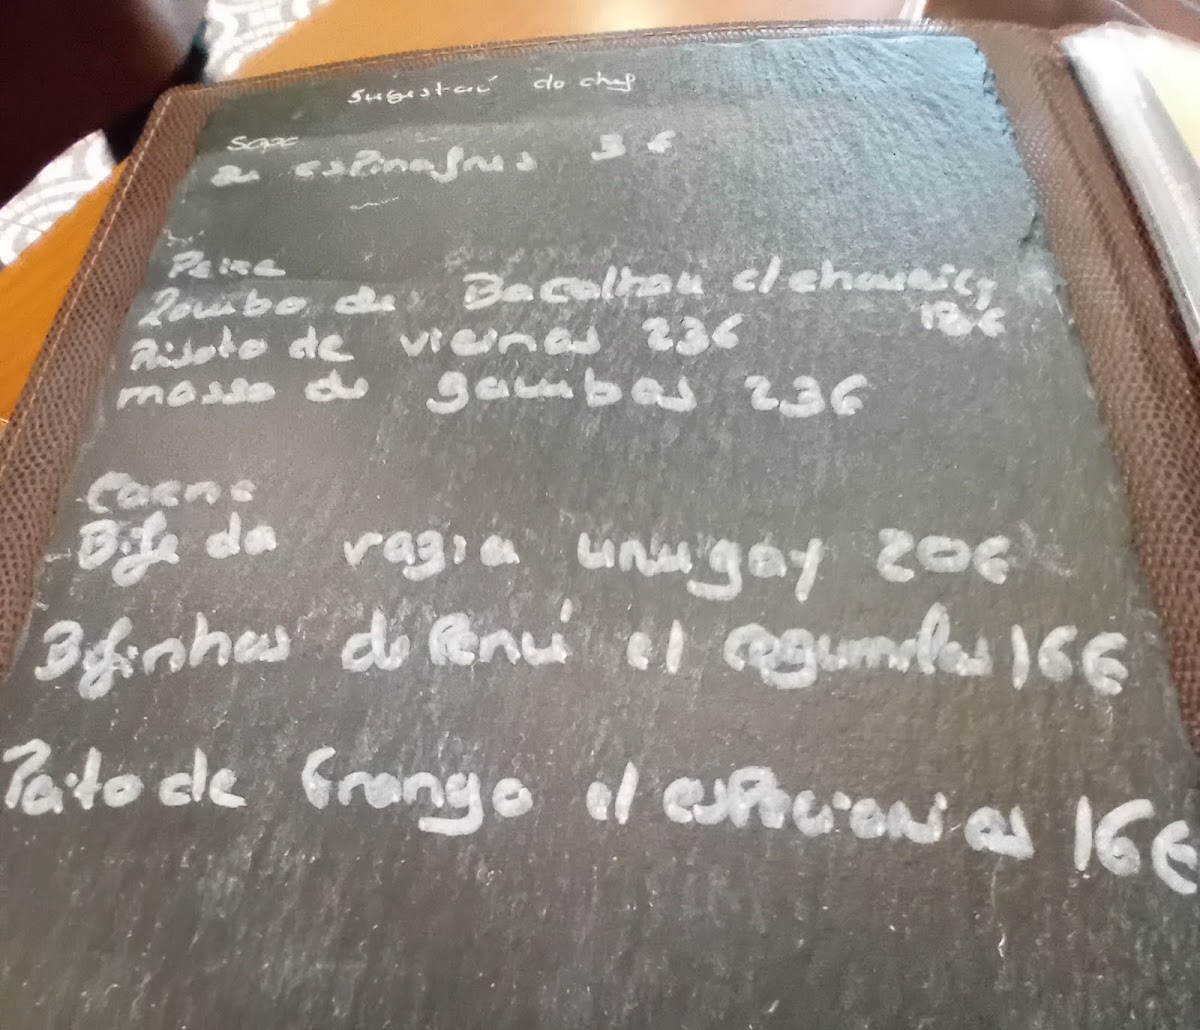 Sugestaú do chef
Sopa
de espinafres 3€
Peixe
Lombo de Bacalhau c/ chouriço
Risoto de vieiras 23€
massa de gambas 23€
Carne
Bife da vazia uruguay 20€
Bifinhos de Perú c/ cogumelos 16€
Peito de frango c/ especiarias 16€